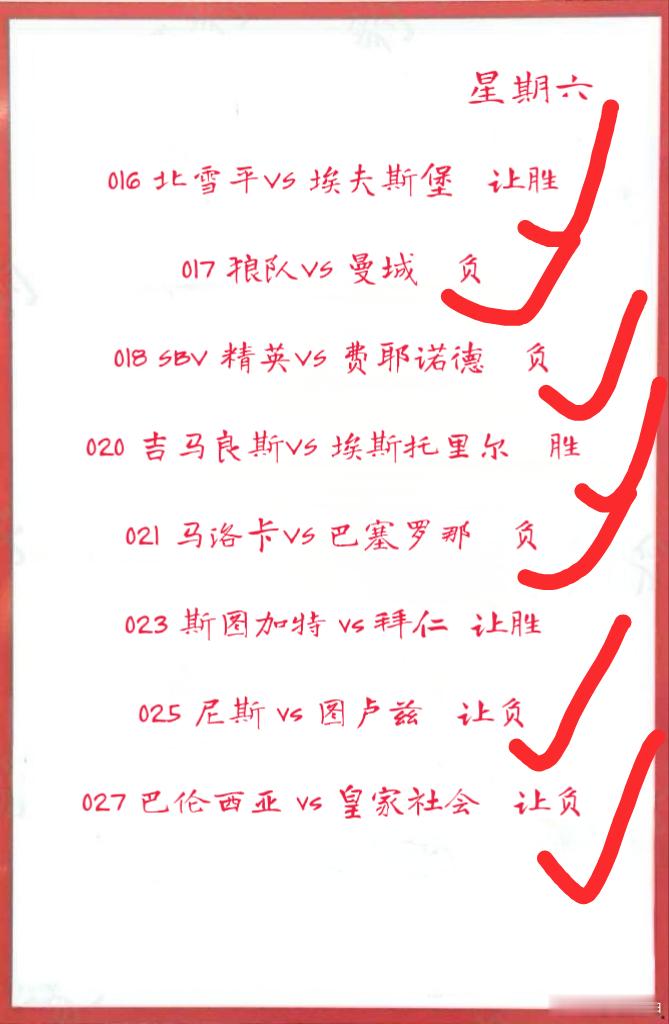 星期六
016 北雪平VS 埃夫斯堡 让胜
017 狼队VS 曼城 负
018 SBV 精英VS 费耶诺德 负
020 吉马良斯VS 埃斯托里尔 胜
021 马洛卡VS 巴塞罗那 负
023 斯图加特 vs 拜仁 让胜
025 尼斯 vs 图卢兹 让负
027 巴伦西亚 vs 皇家社会 让负